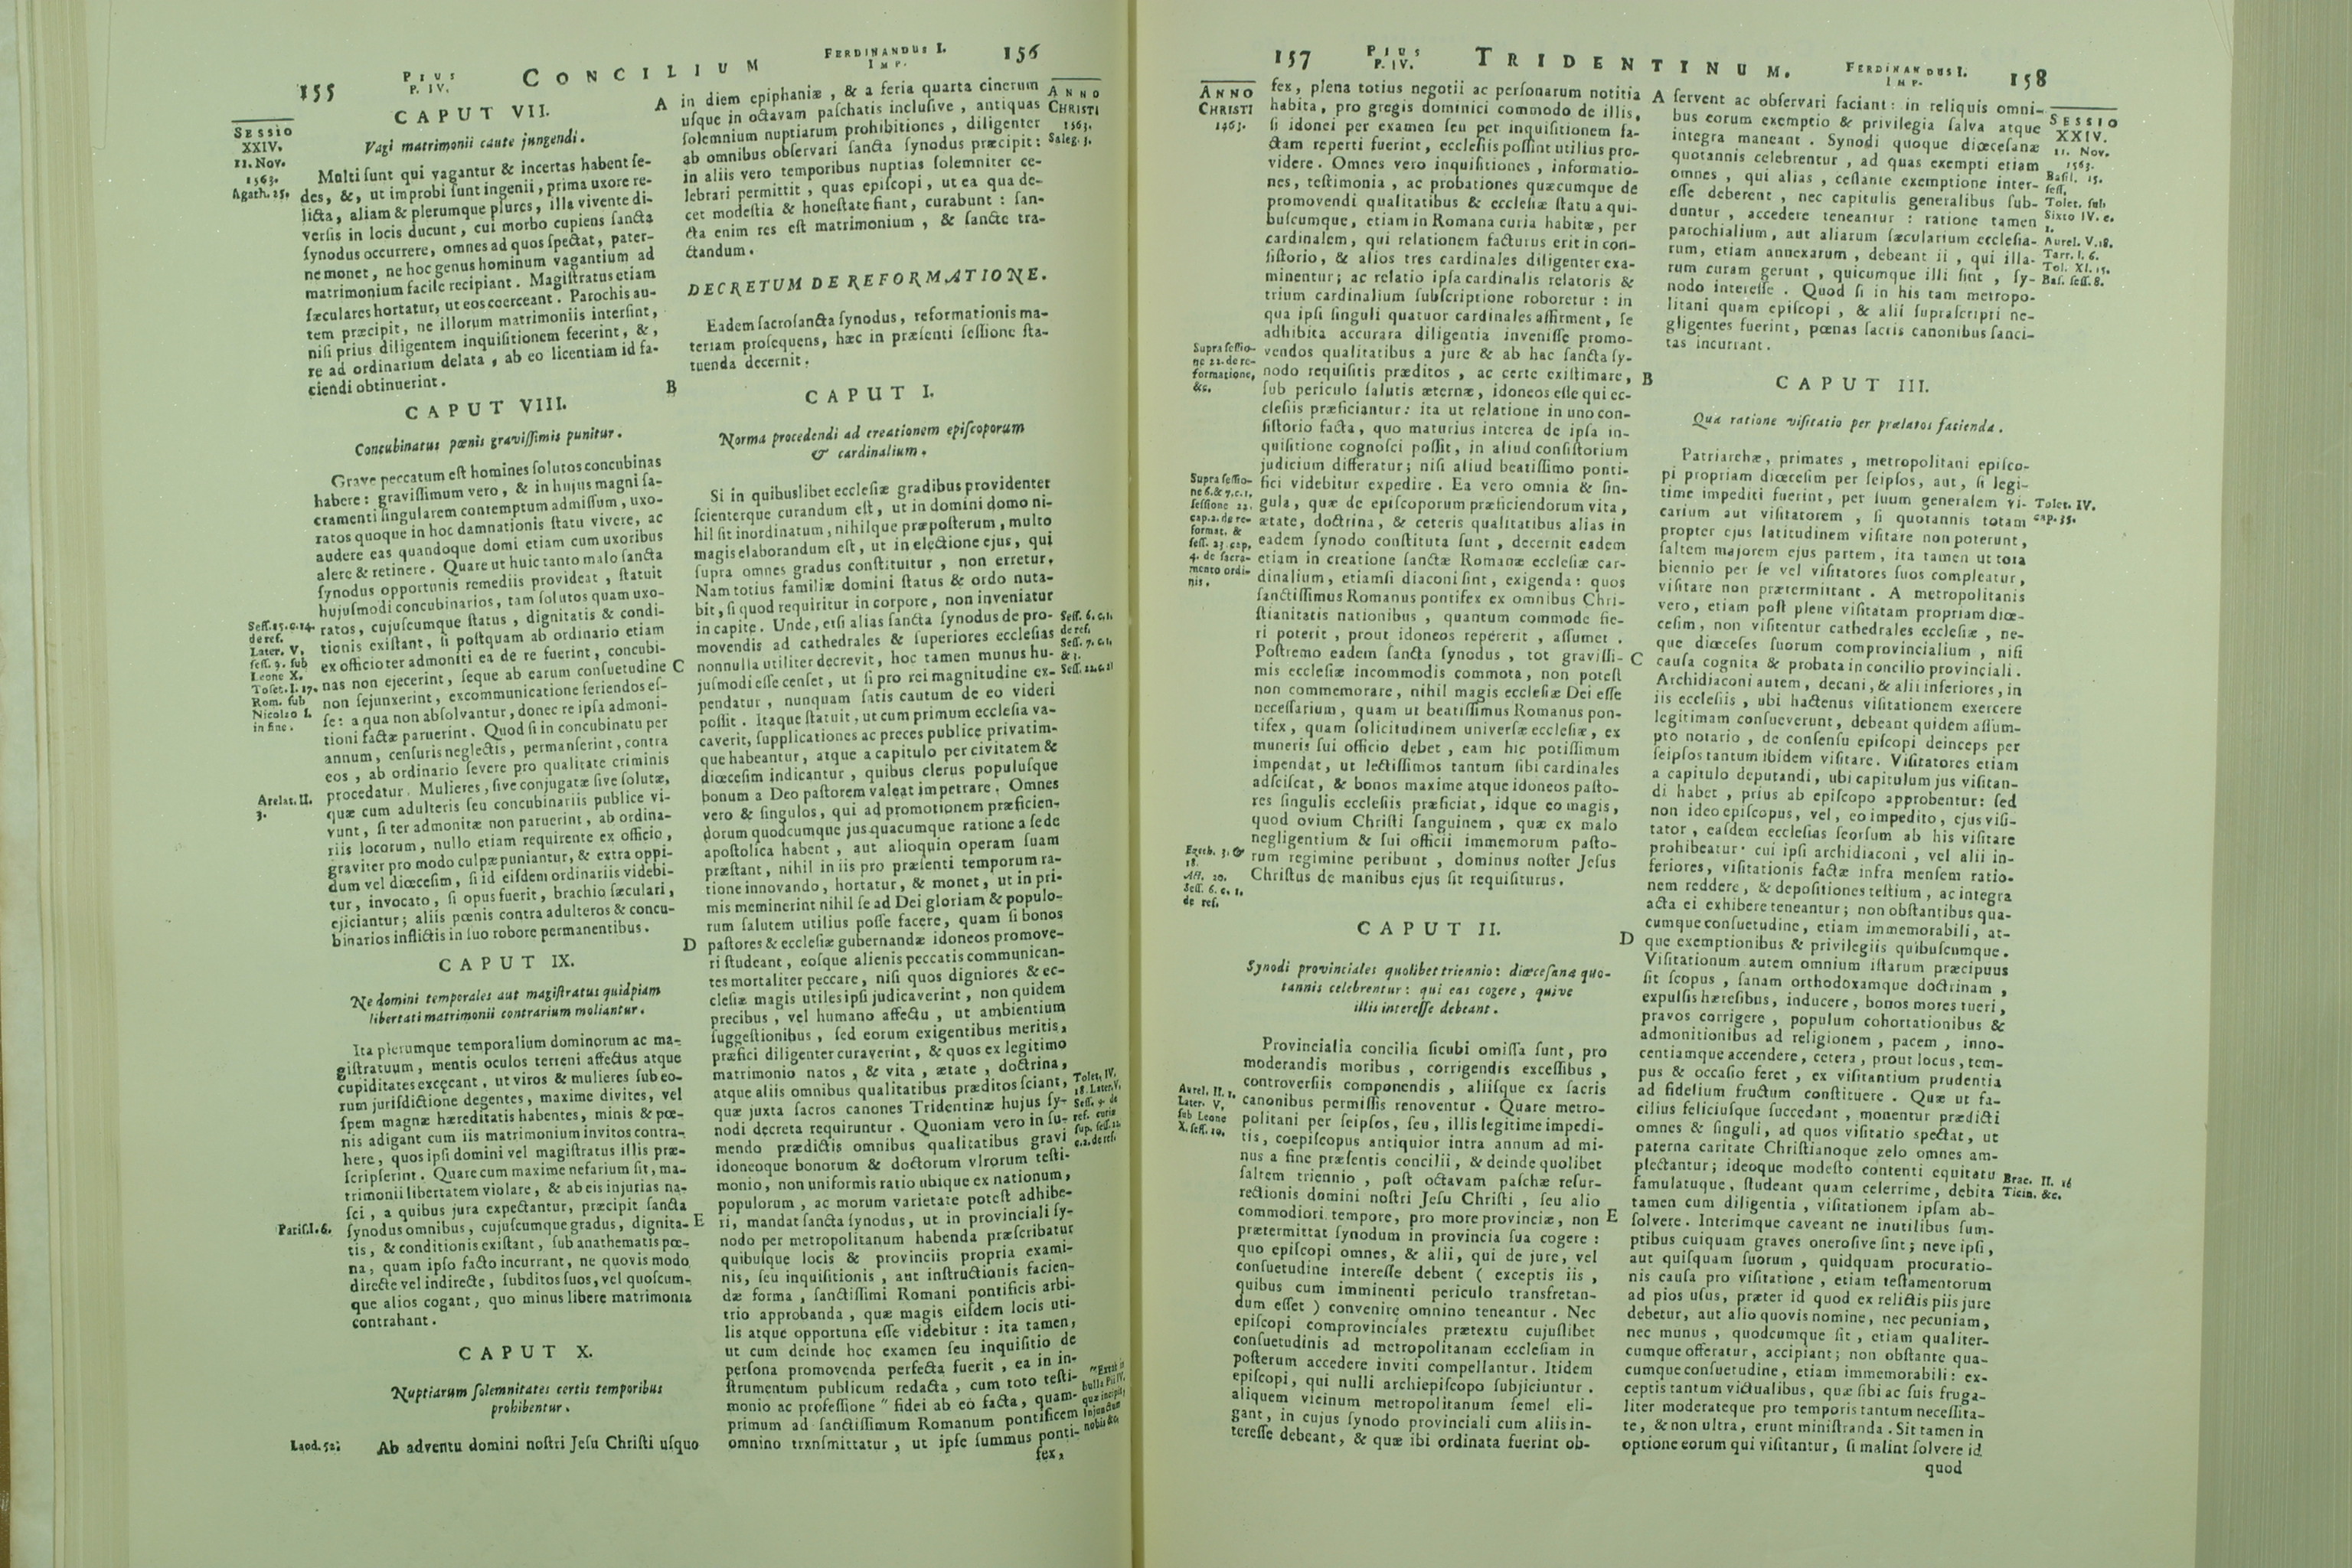 155
PIUS
P. IV.
CONCILIUM
FERDINANDUS I.
IMP.
156
SESSIO
XXIV.
11. Nov.
1563.
Agath. 25.
CAPUT VII.
Vagi matrimonii caute jungendi.
Multi ſunt qui vagantur & incertas habent ſe-
des, &, ut improbi ſunt ingenii, prima uxore re-
licta, aliam & plerumque plures, illa vivente di-
verſis in locis ducunt, cui morbo cupiens ſancta
ſynodus occurrere, omnes ad quos ſpectat, pater-
ne monet, ne hoc genus hominum vagantium ad
matrimonium facile recipiant. Magiſtratus etiam
ſæculares hortatur, ut eos coerceant. Parochis au-
tem præcipit, ne illorum matrimoniis interſint,
niſi prius diligentem inquiſitionem fecerint, &,
re ad ordinarium delata, ab eo licentiam id fa-
ciendi obtinuerint.
CAPUT VIII.
Concubinatus pœnis graviſſimis punitur.
Grave peccatum eſt homines ſolutos concubinas
habere: graviſſimum vero, & in hujus magni ſa-
cramenti ſingularem contemptum admiſſum, uxo-
ratos quoque in hoc damnationis ſtatu vivere, ac
audere eas quandoque domi etiam cum uxoribus
alere & retinere. Quare ut huic tanto malo ſancta
ſynodus opportunis remediis provideat, ſtatuit
hujuſmodi concubinarios, tam ſolutos quam uxo-
ratos, cujuſcumque ſtatus, dignitatis & condi-
tionis exiſtant, ſi poſtquam ab ordinario etiam
ex officio ter admoniti ea de re fuerint, concubi-
nas non ejecerint, ſeque ab earum conſuetudine
non ſejunxerint, excommunicatione feriendos eſ-
ſe: a qua non abſolvantur, donec re ipſa admoni-
tioni factæ paruerint. Quod ſi in concubinatu per
annum, cenſuris neglectis, permanſerint, contra
eos, ab ordinario ſevere pro qualitate criminis
procedatur. Mulieres, ſive conjugatæ ſive ſolutæ,
quæ cum adulteris ſeu concubinariis publice vi-
vunt, ſi ter admonitæ non paruerint, ab ordina-
riis locorum, nullo etiam requirente ex officio,
graviter pro modo culpæ puniantur, & extra oppi-
dum vel diœceſim, ſi id eiſdem ordinariis videbi-
tur, invocato, ſi opus fuerit, brachio ſæculari,
ejiciantur; aliis pœnis contra adulteros & concu-
binarios inflictis in ſuo robore permanentibus.
Seſſ. 25. c. 14.
de ref.
Later. V.
ſeſſ. 9. ſub
Leone X.
Tolet. I. 17.
Rom. ſub
Nicolao I.
in fine.
Arelat. II.
3.
CAPUT IX.
Ne domini temporales aut magiſtratus quidpiam
libertati matrimonii contrarium moliantur.
Ita plerumque temporalium dominorum ac ma-
giſtratuum, mentis oculos terreni affectus atque
cupiditates excęcant, ut viros & mulieres ſub eo-
rum juriſdictione degentes, maxime divites, vel
ſpem magnæ hæreditatis habentes, minis & pœ-
nis adigant cum iis matrimonium invitos contra-
here, quos ipſi domini vel magiſtratus illis præ-
ſcripſerint. Quare cum maxime nefarium ſit, ma-
trimonii libertatem violare, & ab eis injurias na-
ſci, a quibus jura expectantur, præcipit ſancta
ſynodus omnibus, cujuſcumque gradus, dignita-
tis, & conditionis exiſtant, ſub anathematis pœ-
na, quam ipſo facto incurrant, ne quovis modo
directe vel indirecte, ſubditos ſuos, vel quoſcum-
que alios cogant, quo minus libere matrimonia
contrahant.
Pariſ. I. 6.
CAPUT X.
Nuptiarum ſolemnitates certis temporibus
prohibentur.
Laod. 52.
Ab adventu domini noſtri Jeſu Chriſti uſquo
A
B
C
D
E
in diem epiphaniæ, & a feria quarta cinerum
uſque in octavam paſchatis incluſive, antiquas
ſolemnium nuptiarum prohibitiones, diligenter
ab omnibus obſervari ſancta ſynodus præcipit:
in aliis vero temporibus nuptias ſolemniter ce-
lebrari permittit, quas epiſcopi, ut ea qua de-
cet modeſtia & honeſtate fiant, curabunt: ſan-
cta enim res eſt matrimonium, & ſancte tra-
ctandum.
ANNO
CHRISTI
1563.
Saleg. 3.
DECRETUM DE REFORMATIONE.
Eadem ſacroſancta ſynodus, reformationis ma-
teriam proſequens, hæc in præſenti ſeſſione ſta-
tuenda decernit.
CAPUT I.
Norma procedendi ad creationem epiſcoporum
& cardinalium.
Si in quibuslibet eccleſiæ gradibus providenter
ſcienterque curandum eſt, ut in domini domo ni-
hil ſit inordinatum, nihilque præpoſterum, multo
magis elaborandum eſt, ut in electione ejus, qui
ſupra omnes gradus conſtituitur, non erretur.
Nam totius familiæ domini ſtatus & ordo nuta-
bit, ſi quod requiritur in corpore, non inveniatur
in capite. Unde, etſi alias ſancta ſynodus de pro-
movendis ad cathedrales & ſuperiores eccleſias
nonnulla utiliter decrevit, hoc tamen munus hu-
juſmodi eſſe cenſet, ut ſi pro rei magnitudine ex-
pendatur, nunquam ſatis cautum de eo videri
poſſit. Itaque ſtatuit, ut cum primum eccleſia va-
caverit, ſupplicationes ac preces publice privatim-
que habeantur, atque a capitulo per civitatem &
diœceſim indicantur, quibus clerus populuſque
bonum a Deo paſtorem valeat impetrare. Omnes
vero & ſingulos, qui ad promotionem præficien-
dorum quodcumque jus quacumque ratione a ſede
apoſtolica habent, aut alioquin operam ſuam
præſtant, nihil in iis pro præſenti temporum ra-
tione innovando, hortatur, & monet, ut in pri-
mis meminerint nihil ſe ad Dei gloriam & populo-
rum ſalutem utilius poſſe facere, quam ſi bonos
paſtores & eccleſiæ gubernandæ idoneos promove-
ri ſtudeant, eoſque alienis peccatis communican-
tes mortaliter peccare, niſi quos digniores & ec-
cleſiæ magis utiles ipſi judicaverint, non quidem
precibus, vel humano affectu, ut ambientium
ſuggeſtionibus, ſed eorum exigentibus meritis,
præfici diligenter curaverint, & quos ex legitimo
matrimonio natos, & vita, ætate, doctrina,
atque aliis omnibus qualitatibus præditos ſciant,
quæ juxta ſacros canones Tridentinæ hujus ſy-
nodi decreta requiruntur. Quoniam vero in ſu-
mendo prædictis omnibus qualitatibus gravi
idoneoque bonorum & doctorum vlrorum teſti-
monio, non uniformis ratio ubique ex nationum,
populorum, ac morum varietate poteſt adhibe-
ri, mandat ſancta ſynodus, ut in provinciali ſy-
nodo per metropolitanum habenda præſcribatur
quibuſque locis & provinciis propria exami-
nis, ſeu inquiſitionis, aut inſtructionis facien-
dæ forma, ſanctiſſimi Romani pontificis arbi-
trio approbanda, quæ magis eiſdem locis uti-
lis atque opportuna eſſe videbitur: ita tamen,
ut cum deinde hoc examen ſeu inquiſitio de
perſona promovenda perfecta fuerit, ea in in-
ſtrumentum publicum redacta, cum toto teſti-
monio ac profeſſione " fidei ab eo facta, quam-
primum ad ſanctiſſimum Romanum pontificem
omnino trxnſmittatur, ut ipſe ſummus ponti-
fex,
Seſſ. 6. c. 1.
de ref.
Seſſ. 7. c. 1.
& 3.
Seſſ. 22. c. 2.
Tolet. IV.
18. Later. V.
Seſſ. 9. de
ref. curiæ
ſup. ſeſſ. 22.
c. 2. de ref.
"Extat in
bulla Pii IV.
quæ incipit,
Injunctum
nobis &c.
157
PIUS
P. IV.
TRIDENTINUM.
FERDINANDUS I.
IMP.
158
ANNO
CHRISTI
1563.
fex, plena totius negotii ac perſonarum notitia
habita, pro gregis dominici commodo de illis,
ſi idonei per examen ſeu per inquiſitionem fa-
ctam reperti fuerint, eccleſiis poſſint utilius pro-
videre. Omnes vero inquiſitiones, informatio-
nes, teſtimonia, ac probationes quæcumque de
promovendi qualitatibus & eccleſiæ ſtatu a qui-
buſcumque, etiam in Romana curia habitæ, per
cardinalem, qui relationem facturus erit in con-
ſiſtorio, & alios tres cardinales diligenter exa-
minentur; ac relatio ipſa cardinalis relatoris &
trium cardinalium ſubſcriptione roboretur: in
qua ipſi ſinguli quatuor cardinales affirment, ſe
adhibita accurara diligentia inveniſſe promo-
vendos qualitatibus a jure & ab hac ſancta ſy-
nodo requiſitis præditos, ac certe exiſtimare,
ſub periculo ſalutis æternæ, idoneos eſſe qui ec-
cleſiis præficiantur: ita ut relatione in uno con-
ſiſtorio facta, quo maturius interea de ipſa in-
quiſitione cognoſci poſſit, in aliud conſiſtorium
judicium differatur; niſi aliud beatiſſimo ponti-
fici videbitur expedire. Ea vero omnia & ſin-
gula, quæ de epiſcoporum præficiendorum vita,
ætate, doctrina, & ceteris qualitatibus alias in
eadem ſynodo conſtituta ſunt, decernit eadem
etiam in creatione ſanctæ Romanæ eccleſiæ car-
dinalium, etiamſi diaconi ſint, exigenda: quos
ſanctiſſimus Romanus pontifex ex omnibus Chri-
ſtianitatis nationibus, quantum commode fie-
ri poterit, prout idoneos repererit, aſſumet.
Poſtremo eadem ſancta ſynodus, tot graviſſi-
mis eccleſiæ incommodis commota, non poteſt
non commemorare, nihil magis eccleſiæ Dei eſſe
neceſſarium, quam ut beatiſſimus Romanus pon-
tifex, quam ſolicitudinem univerſæ eccleſiæ, ex
muneris ſui officio debet, eam hic potiſſimum
impendat, ut lectiſſimos tantum ſibi cardinales
adſciſcat, & bonos maxime atque idoneos paſto-
res ſingulis eccleſiis præficiat, idque eo magis,
quod ovium Chriſti ſanguinem, quæ ex malo
negligentium & ſui officii immemorum paſto-
rum regimine peribunt, dominus noſter Jeſus
Chriſtus de manibus ejus ſit requiſiturus.
Supra ſeſſio-
ne 22. de re-
formatione,
&c.
Supra ſeſſio-
ne 6. & 7. c. 1.
ſeſſione 22.
cap. 2. de re-
format. &
ſeſſ. 23. cap.
4. de ſacra-
mento ordi-
nis.
Ezech. 3. &
18.
Act. 20.
Seſſ. 6. c. 1.
de ref.
CAPUT II.
Synodi provinciales quolibet triennio: diœceſanæ quo-
tannis celebrentur: qui eas cogere, quive
illis intereſſe debeant.
Provincialia concilia ſicubi omiſſa ſunt, pro
moderandis moribus, corrigendis exceſſibus,
controverſiis componendis, aliiſque ex ſacris
canonibus permiſſis renoventur. Quare metro-
politani per ſeipſos, ſeu, illis legitime impedi-
tis, coepiſcopus antiquior intra annum ad mi-
nus a fine præſentis concilii, & deinde quolibet
ſaltem triennio, poſt octavam paſchæ reſur-
rectionis domini noſtri Jeſu Chriſti, ſeu alio
commodiori tempore, pro more provinciæ, non
prætermittat ſynodum in provincia ſua cogere:
quo epiſcopi omnes, & alii, qui de jure, vel
conſuetudine intereſſe debent (exceptis iis,
quibus cum imminenti periculo transfretan-
dum eſſet) convenire omnino teneantur. Nec
epiſcopi comprovinciales prætextu cujuſlibet
conſuetudinis ad metropolitanam eccleſiam in
poſterum accedere inviti compellantur. Itidem
epiſcopi, qui nulli archiepiſcopo ſubjiciuntur.
aliquem vicinum metropolitanum ſemel eli-
gant, in cujus ſynodo provinciali cum aliis in-
tereſſe debeant, & quæ ibi ordinata fuerint ob-
Aurel. II. 1.
Later. V.
ſub Leone
X. ſeſſ. 10.
A
B
C
D
E
ſervent ac obſervari faciant: in reliquis omni-
bus eorum exemptio & privilegia ſalva atque
integra maneant. Synodi quoque diœceſanæ
quotannis celebrentur, ad quas exempti etiam
omnes, qui alias, ceſſante exemptione inter-
eſſe deberent, nec capitulis generalibus ſub-
duntur, accedere teneantur: ratione tamen
parochialium, aut aliarum ſæcularium eccleſia-
rum, etiam annexarum, debeant ii, qui illa-
rum curam gerunt, quicumque illi ſint, ſy-
nodo intereſſe. Quod ſi in his tam metropo-
litani quam epiſcopi, & alii ſupraſcripti ne-
gligentes fuerint, pœnas ſacris canonibus ſanci-
tas incurrant.
SESSIO
XXIV.
11. Nov.
1563.
Baſil. 15.
ſeſſ.
Tolet. ſub
Sixto IV. c.
1.
Aurel. V. 18.
Tarr. I. 6.
Tol. XI. 15.
Baſ. ſeſſ. 8.
CAPUT III.
Qua ratione viſitatio per prælatos facienda.
Patriarchæ, primates, metropolitani epiſco-
pi propriam diœceſim per ſeipſos, aut, ſi legi-
time impediti fuerint, per ſuum generalem vi-
carium aut viſitatorem, ſi quotannis totam
propter ejus latitudinem viſitare non poterunt,
ſaltem majorem ejus partem, ita tamen ut tota
biennio per ſe vel viſitatores ſuos compleatur,
viſitare non prætermittant. A metropolitanis
vero, etiam poſt plene viſitatam propriam diœ-
ceſim, non viſitentur cathedrales eccleſiæ, ne-
que diœceſes ſuorum comprovincialium, niſi
cauſa cognita & probata in concilio provinciali.
Archidiaconi autem, decani, & alii inferiores, in
iis eccleſiis, ubi hactenus viſitationem exercere
legitimam conſueverunt, debeant quidem aſſum-
pto notario, de conſenſu epiſcopi deinceps per
ſeipſos tantum ibidem viſitare. Viſitatores etiam
a capitulo deputandi, ubi capitulum jus viſitan-
di habet, prius ab epiſcopo approbentur: ſed
non ideo epiſcopus, vel, eo impedito, ejus viſi-
tator, eaſdem eccleſias ſeorſum ab his viſitare
prohibeatur: cui ipſi archidiaconi, vel alii in-
feriores, viſitationis factæ infra menſem ratio-
nem reddere, & depoſitiones teſtium, ac integra
acta ei exhibere teneantur; non obſtantibus qua-
cumque conſuetudine, etiam immemorabili, at-
que exemptionibus & privilegiis quibuſcumque.
Viſitationum autem omnium iſtarum præcipuus
ſit ſcopus, ſanam orthodoxamque doctrinam,
expulſis hæreſibus, inducere, bonos mores tueri,
pravos corrigere, populum cohortationibus &
admonitionibus ad religionem, pacem, inno-
centiamque accendere, cetera, prout locus, tem-
pus & occaſio feret, ex viſitantium prudentia
ad fidelium fructum conſtituere. Quæ ut fa-
cilius feliciuſque ſuccedant, monentur prædicti
omnes & ſinguli, ad quos viſitatio ſpectat, ut
paterna caritate Chriſtianoque zelo omnes am-
plectantur; ideoque modeſto contenti equitatu
famulatuque, ſtudeant quam celerrime, debita
tamen cum diligentia, viſitationem ipſam ab-
ſolvere. Interimque caveant ne inutilibus ſum-
ptibus cuiquam graves oneroſive ſint; neve ipſi,
aut quiſquam ſuorum, quidquam procuratio-
nis cauſa pro viſitatione, etiam teſtamentorum
ad pios uſus, præter id quod ex relictis piis jure
debetur, aut alio quovis nomine, nec pecuniam,
nec munus, quodcumque ſit, etiam qualiter-
cumque offeratur, accipiant; non obſtante qua-
cumque conſuetudine, etiam immemorabili: ex-
ceptis tantum victualibus, quæ ſibi ac ſuis fruga-
liter moderateque pro temporis tantum neceſſita-
te, & non ultra, erunt miniſtranda. Sit tamen in
optione eorum qui viſitantur, ſi malint ſolvere id
quod
Tolet. IV.
cap. 35.
Brac. II. 16
Ticin. &c.